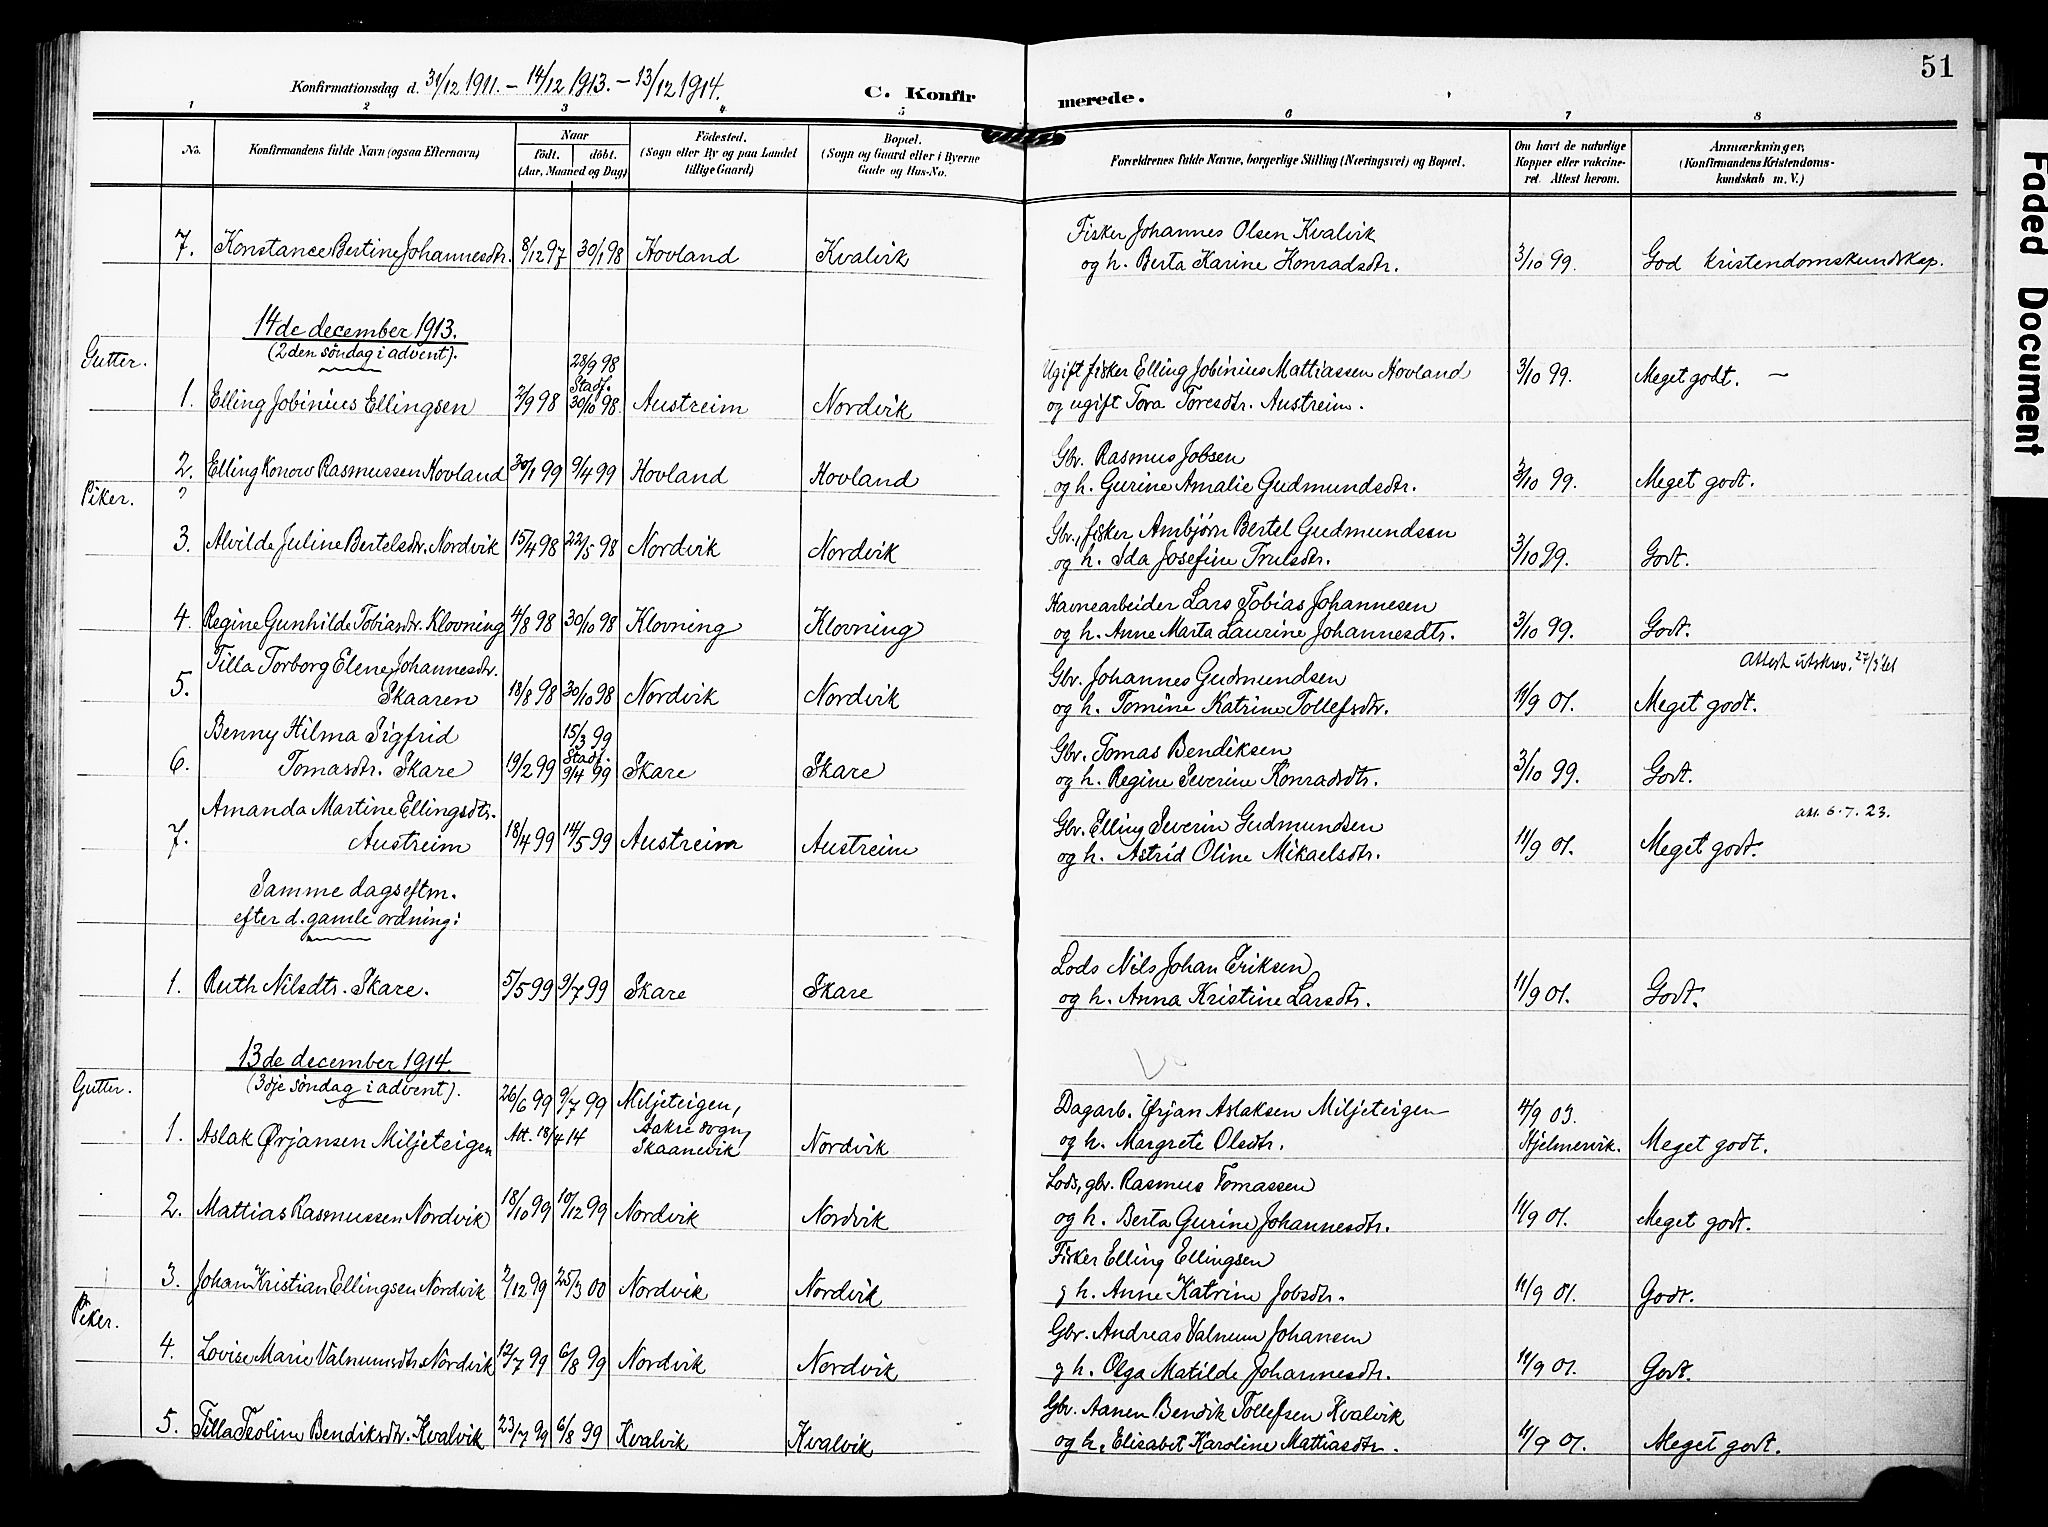 51
Konfirmationsdag d. 31/12 1911. – 14/12 1913. – 13/12 1914.
C. Konfir merede.
1 2 3 4 5 6 7 8
No.
Konfirmandens fulde Navn (ogsaa Efternavn)
Naar
födt. döbt.
(Aar, Maaned og Dag)
Födested.
(Sogn eller By og paa Landet
tillige Gaard)
Bopæl.
(Sogn og Gaard eller i Byerne
Gade og Hus-No.
Forældrenes fulde Navne, borgerlige Stilling (Næringsvei) og Bopæl.
Om havt de naturlige
Kopper eller vakcine-
ret. Attest herom.
Anmærkninger,
(Konfirmandens Kristendoms-
kundskab m. V.)
Fisker Johannes Olsen Kvalvik
7. Konstance Bertine Johannesdtr. 8/12 97 30/1 98 Hovland Kvalvik og h. Berta Karine Konradsdtr. 3/10 99. God kristendomskundskap.
14de december 1913.
(2den søndag i advent).
Gutter.
28/9 98 Ugift fisker Elling Jobinius Mattiassen Hovland 3/10 99. Meget godt. —
Stadf.
1. Elling Jobinius Ellingsen 2/9 98 30/10 98. Austreim Nordvik og ugift Tora Toresdtr. Austreim.
Gbr. Rasmus Jobsen
2. Elling Konow Rasmussen Hovland 30/1 99 9/4 99 Hovland Hovland og h. Gurine Amalie Gudmundsdtr. 3/10 99. Meget godt.
Piker.
Gbr., fisker Ambjørn Bertel Gudmundsen
3. Alvilde Juline Bertelsdtr. Nordvik 15/4 98 22/5 98 Nordvik Nordvik og h. Ida Josefine Trulsdtr. 3/10 99. Godt.
Havnearbeider Lars Tobias Johannesen
4. Regine Gunhilde Tobiasdtr. Klovning 4/8 98 30/10 98 Klovning Klovning og h. Anne Marta Laurine Johannesdtr. 3/10 99. Godt.
Tilla Torborg Elene Johannesdtr. Gbr. Johannes Gudmundsen Attest utskrev.
5. Skaaren 18/8 98 30/10 98 Nordvik Nordvik og h. Tomine Katrine Tollefsdtr. 11/9 01. Meget godt.
Benny Hilma Sigfrid 15/3 99 Gbr. Tomas Bendiksen
Stadf.
6. Tomasdtr. Skare 19/2 99 9/4 99 Skare Skare og h. Regine Severine Konradsdtr. 3/10 99. Godt.
Amanda Martine Ellingsdtr. Gbr. Elling Severin Gudmundsen att. 6.7.23.
7. Austreim 18/4 99 14/5 99 Austreim Austreim og h. Astrid Oline Mikaelsdtr. 11/9 01. Meget godt.
Samme dags eftm.
efter d. gamle ordning:
Lods Nils Johan Eriksen
1. Ruth Nilsdtr. Skare. 5/5 99 9/7 99 Skare Skare og h. Anna Kristine Larsdtr. 11/9 01. Godt.
13de december 1914.
(3dje søndag i advent).
Gutter.
26/6 99 9/7 99 Miljeteigen, Dagarb. Ørjan Aslaksen Miljeteigen 4/9 03.
Att. 18/4 14 Aakre sogn,
1. Aslak Ørjansen Miljeteigen Skaanevik Nordvik og h. Margrete Olsdtr. Hjelmervik. Meget godt.
Lods, gbr. Rasmus Tomassen
2. Mattias Rasmussen Nordvik 18/10 99 10/12 99 Nordvik Nordvik og h. Berta Gurine Johannesdtr. 11/9 01. Meget godt.
Fisker Elling Ellingsen
3. Johan Kristian Ellingsen Nordvik 2/12 99 25/3 00 Nordvik Nordvik g h. Anne Katrine Jobsdtr. 11/9 01. Godt.
Piker.
Gbr. Andreas Valnum Johansen
4. Lovise Marie Valnumsdtr. Nordvik 12/7 99 6/8 99 Nordvik Nordvik g h. Olga Matilde Johannesdtr. 11/9 01. Godt.
Gbr. Aanen Bendik Tollefsen Kvalvik
5. Tilla Teoline Bendiksdtr. Kvalvik 23/7 99 6/8 99 Kvalvik Kvalvik og h. Elisabet Karoline Mattiasdtr. 11/9 01. Meget godt.
Faded Document